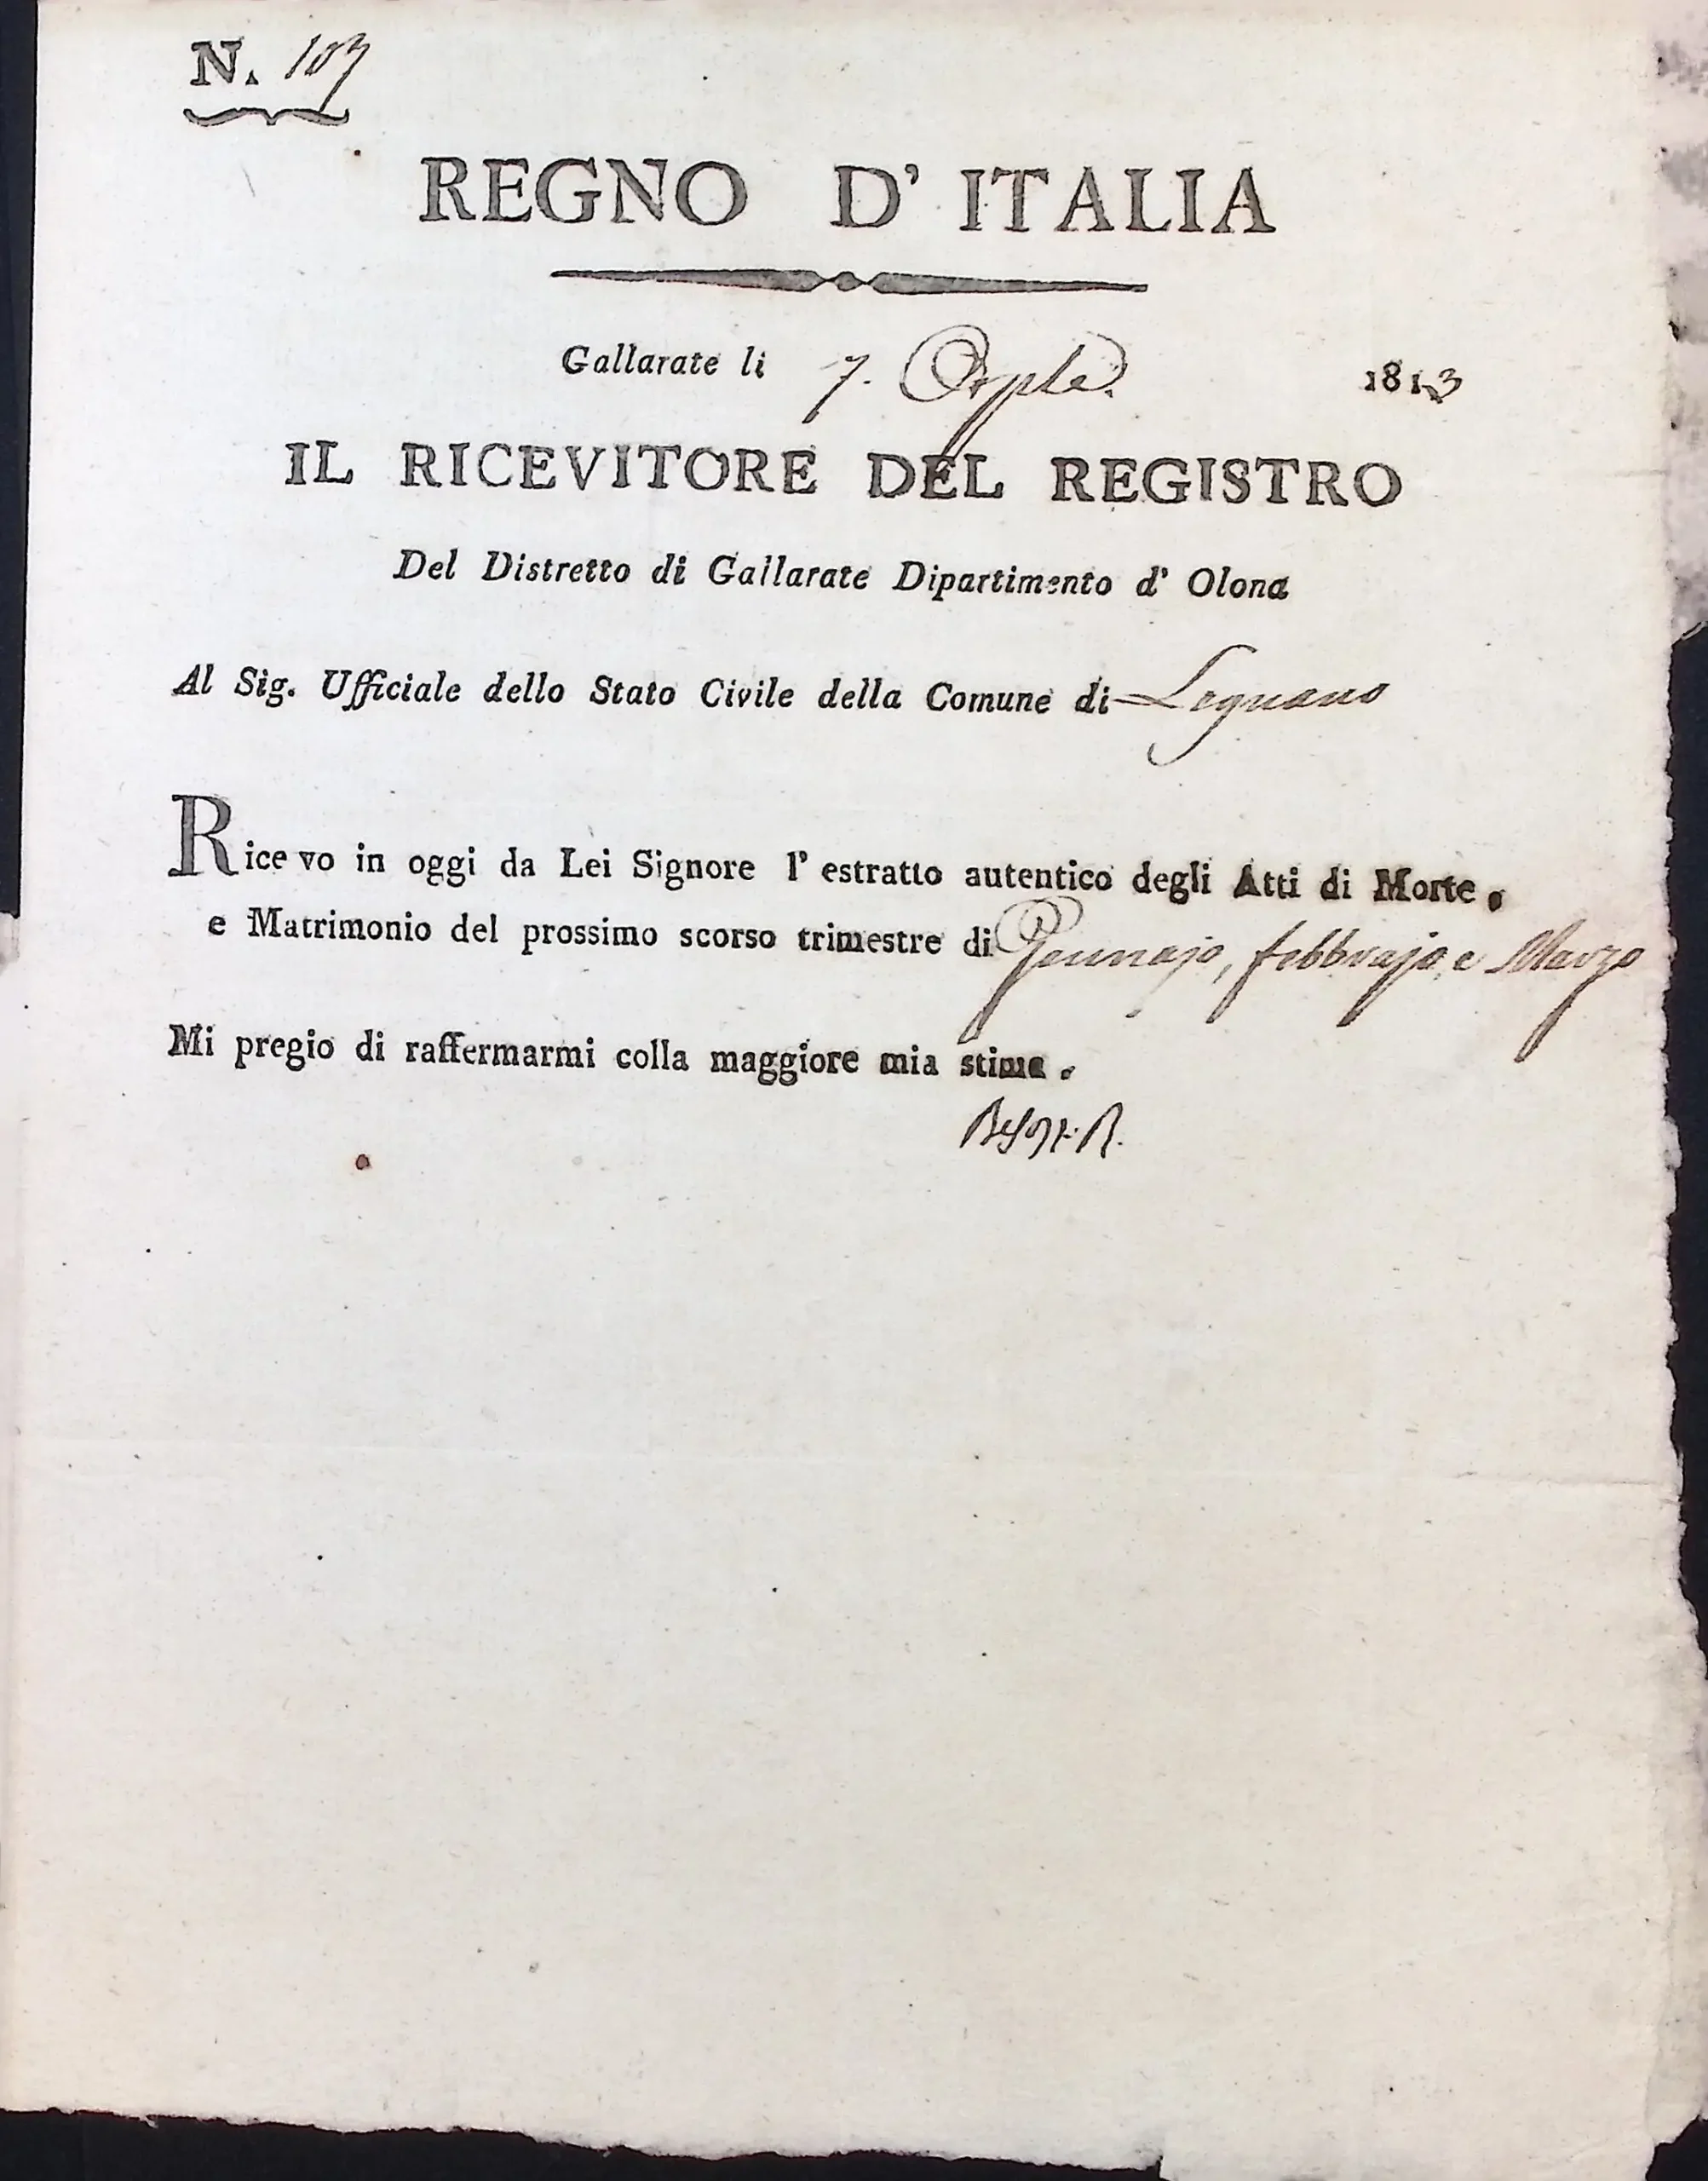 N. 103
REGNO D' ITALIA
Gallarate li 7. Aprile 1813
IL RICEVITORE DEL REGISTRO
Del Distretto di Gallarate Dipartimento d' Olona
Al Sig. Ufficiale dello Stato Civile della Comune di Legnano
Ricevo in oggi da Lei Signore l' estratto autentico degli Atti di Morte.
e Matrimonio del prossimo scorso trimestre di Gennajo, febbrajo, e Marzo
Mi pregio di raffermarmi colla maggiore mia stima.